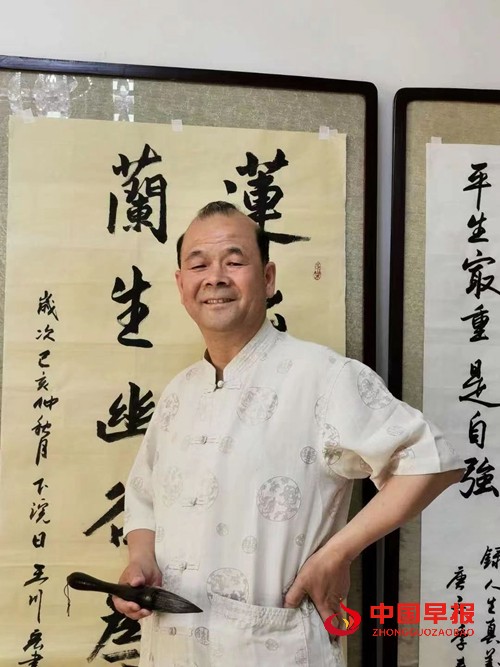 平生最重是自強
錄人生真
唐
蓮
蘭生幽谷
歲次己亥仲秋月下浣日王川
中国早报
ZHONGGUOZAOBAO.COM